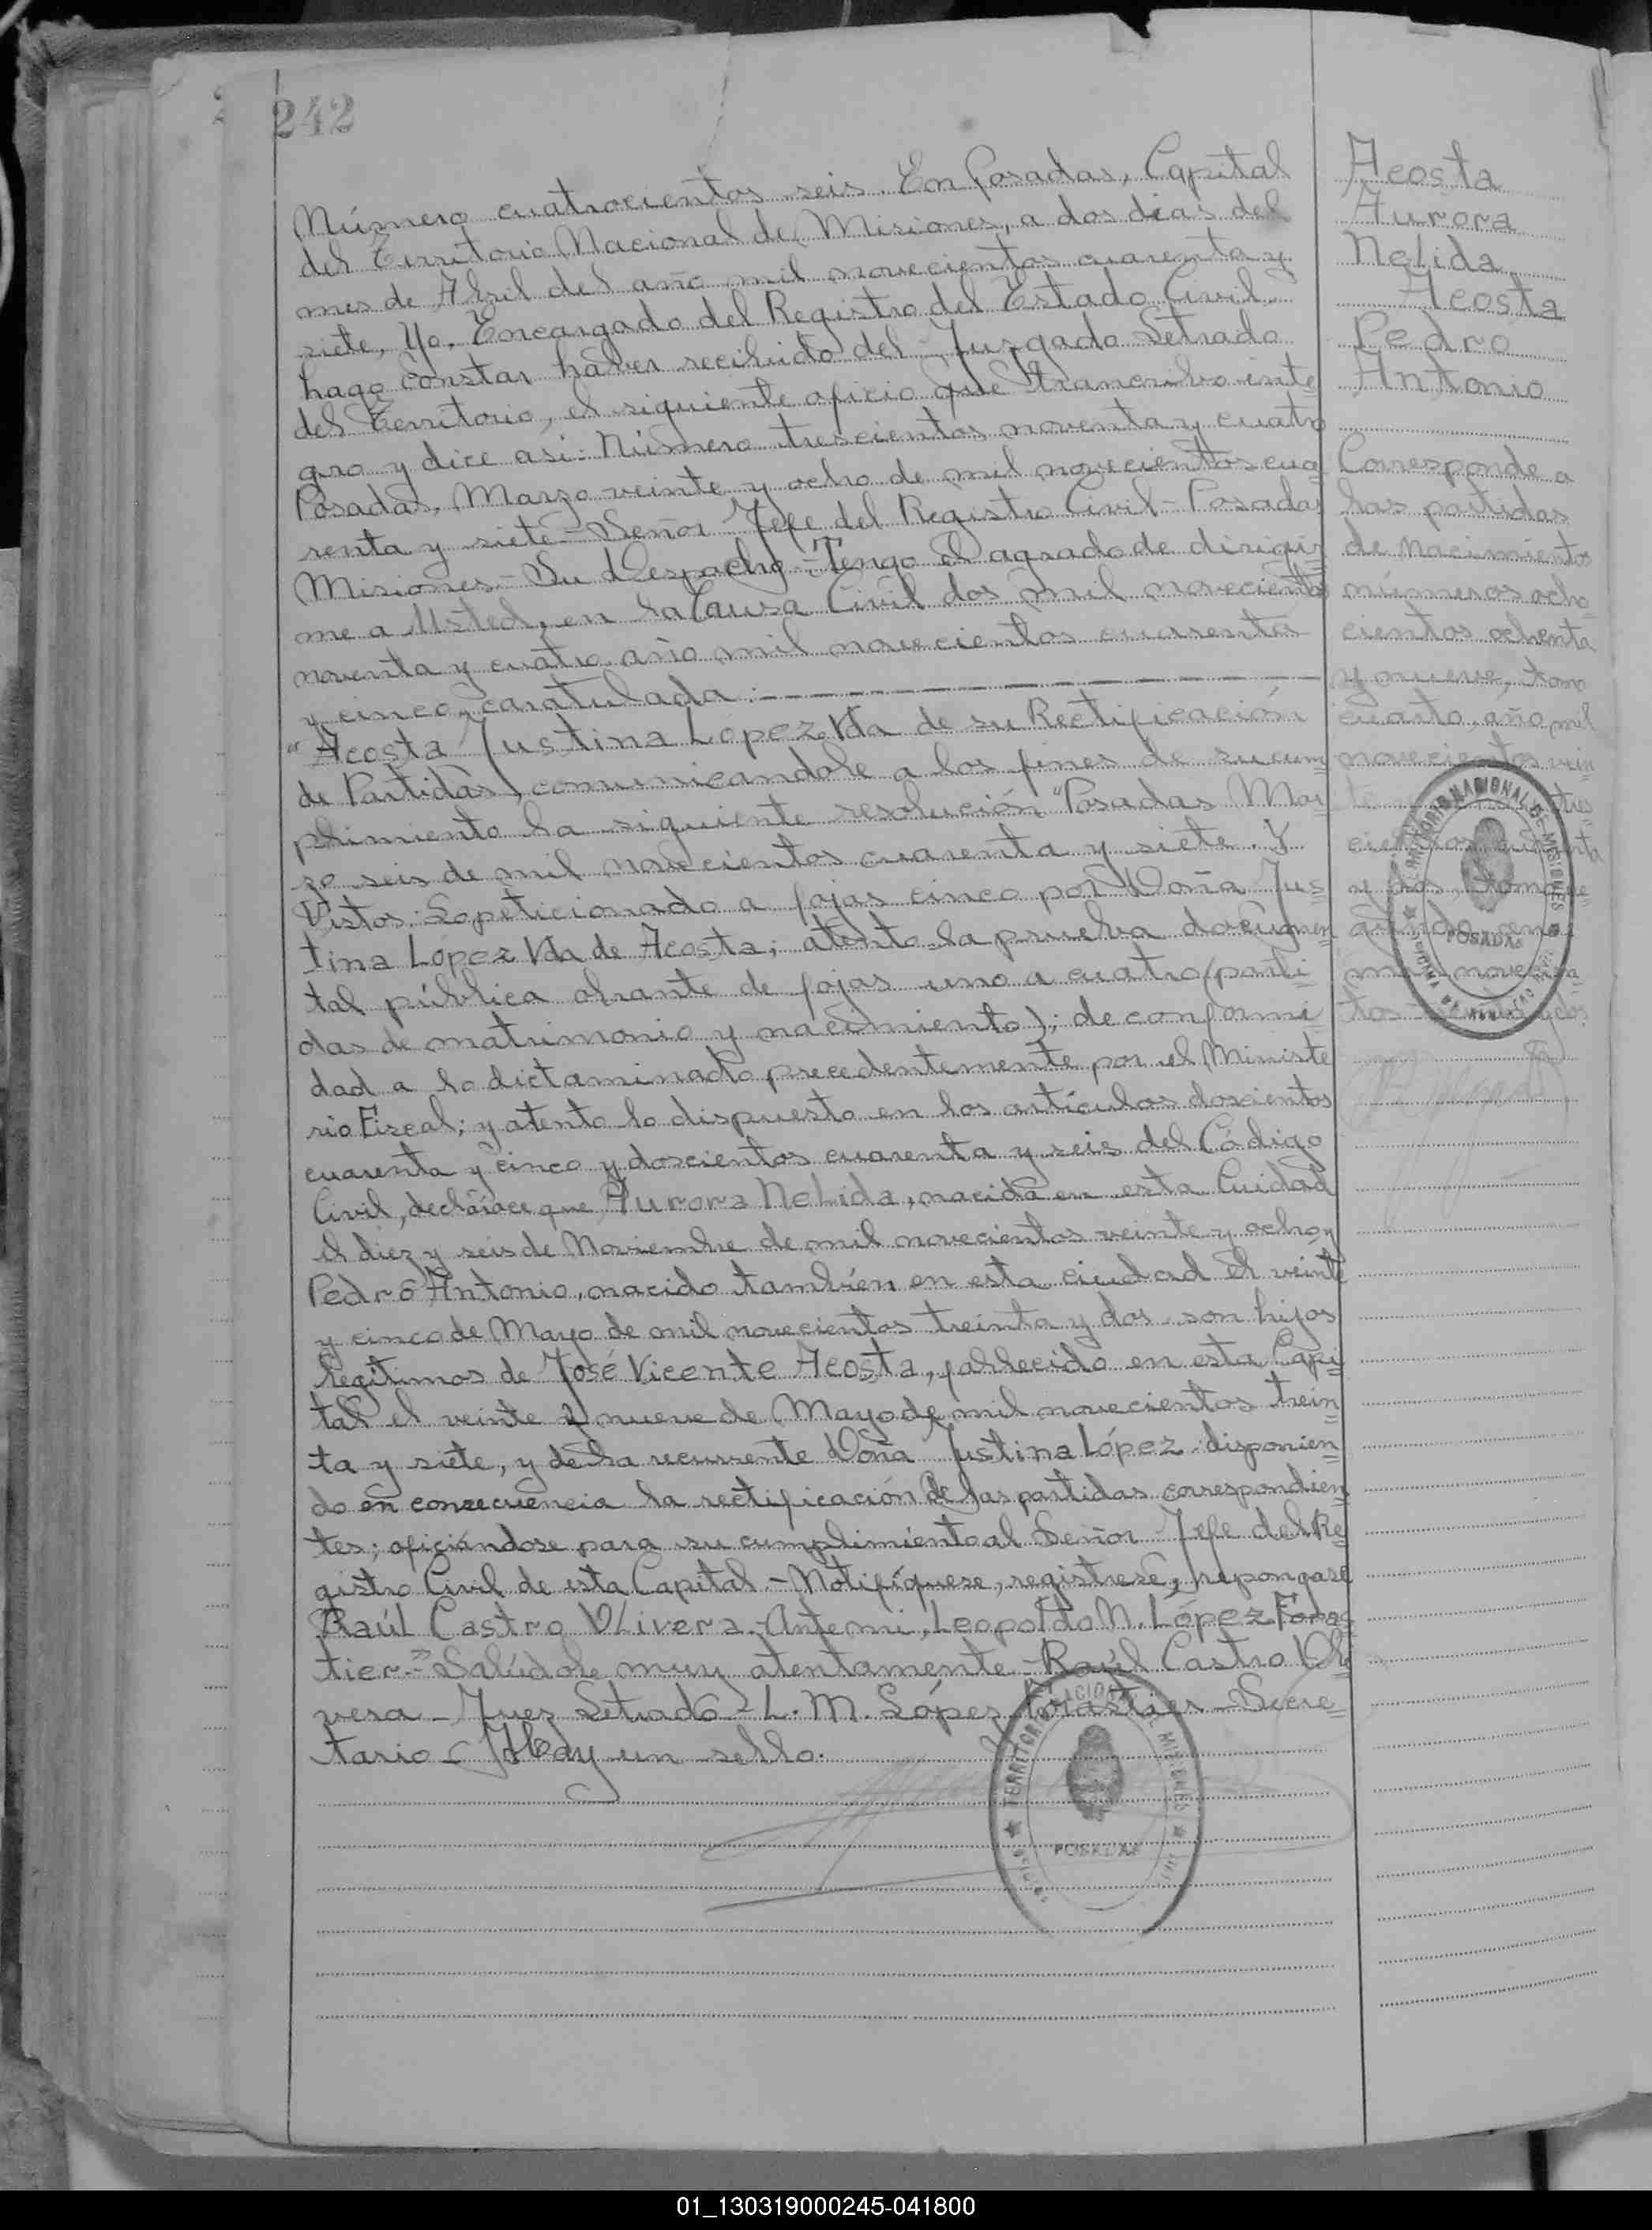 242
Número cuatrocientos seis. En Posadas, Capital
del Territorio Nacional de Misiones, a dos dias del
mes de Abril del año mil novecientos cuarenta y
siete, Yo, Encargado del Registro del Estado Civil,
hago constar haber recibido del Juzgado Letrado
del Territorio, el siguiente oficio que transcribo inte
gro y dice asi: Número trescientos noventa y cuatro
Posadas, Marzo veinte y ocho de mil novecientos cua
renta y siete - Señor Jefe del Registro Civil - Posadas
Misiones - Su despacho - Tengo el agrado de dirigir
me a Usted, en la Causa Civil dos mil novecientos
noventa y cuatro año mil novecientos cuarenta
y cinco, caratulada: -
"Acosta Justina López Vda de su Rectificación
de Partidas, comunicandole a los fines de su cum
plimiento la siguiente resolución "Posadas Mar
zo seis de mil novecientos cuarenta y siete. Y
Vistos: Lo peticionado a fojas cinco por Doña Jus
tina López Vda de Acosta; atento la prueba documen
tal pública obrante de fojas uno a cuatro (parti
das de matrimonio y nacimiento); de conformi
dad a lo dictaminado precedentemente por el Ministe
rio Fiscal; y atento lo dispuesto en los artículos doscientos
cuarenta y cinco y doscientos cuarenta y seis del Código
Civil, declárace que Aurora Nelida, nacida en esta Cuidad
el diez y seis de Noviembre de mil novecientos veinte y ocho y
Pedro Antonio, nacido también en esta ciudad el veinte
y cinco de Mayo de mil novecientos treinta y dos son hijos
legítimos de José Vicente Acosta, fallecido en esta Capi
tal el veinte y nueve de Mayo de mil novecientos trein
ta y siete, y de la recurrente Doña Justina López disponien
do en consecuencia la rectificación de las partidas correspondien
tes; oficiándose para su cumplimiento al Señor Jefe del Re
gistro Civil de esta Capital - Notifíquese, registrese, repongase
Raúl Castro Olivera - Ante mi, Leopoldo M. López Foras
tier" - Salúdole muy atentamente - Raúl Castro Oli
vera - Juez Letrado - L. M. López Forastier - Secre
tario - Hay un sello.
TERRITORIO NACIONAL DE MISIONES
POSADAS
Acosta
Aurora
Nelida
Acosta
Pedro
Antonio
Corresponde a
las partidas
de nacimientos
números ocho
cientos ochenta
y nueve, tomo
cuarto, año mil
novecientos vein
tres
y dos, tomo
año
mil novecien
tos treinta y dos
TERRITORIO NACIONAL DE MISIONES
POSADAS
01_130319000245-041800